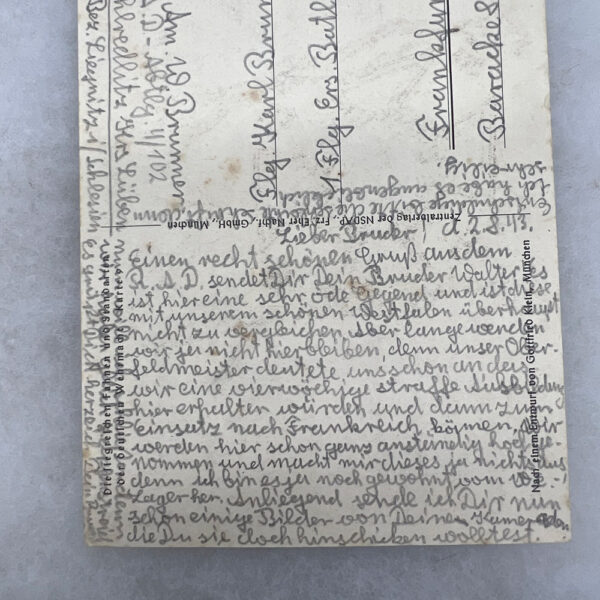 Am. W Brunner
R.A.D.-Abtlg. 4/102
Krs. Lüben
Bez. Liegnitz i/Schlesien
Flg. Karl Brun
Flg. Ers. Batl.
Frankfur
Baracke 8
Entschuldige bitte die schlechte Schrift, denn
ich habe es augenblicklich
sehr eilig.
Zentralverlag der NSDAP., Frz. Eher Nachf., GmbH., München
Die siegreichen Fahnen und Standarten
Der Deutschen Wehrmacht Karte
Nach einem Entwurf von Gottfried Klein, München
d. 2.8.43.
Lieber Bruder!
Einen recht schönen Gruß aus dem
R.A.D. sendet Dir Dein Bruder Walter. Es
ist hier eine sehr öde Gegend und ist diese
mit unserem schönen Westfalen überhaupt
nicht zu vergleichen. Aber lange werden
wir ja nicht hier bleiben, denn unser Ober-
feldmeister deutete uns schon an das
wir eine vierwöchige straffe Ausbildung
hier erhalten würden und dann zum
Einsatz nach Frankreich kommen. Wir
werden hier schon ganz anständig hochge-
nommen und macht mir dieses ja nichts aus
denn ich bin es ja noch gewohnt vom W.E.-
Lager her. Anliegend sende ich Dir nun
schon einige Bilder von Deinen Kameraden
die Du sie doch hinschicken wolltest.